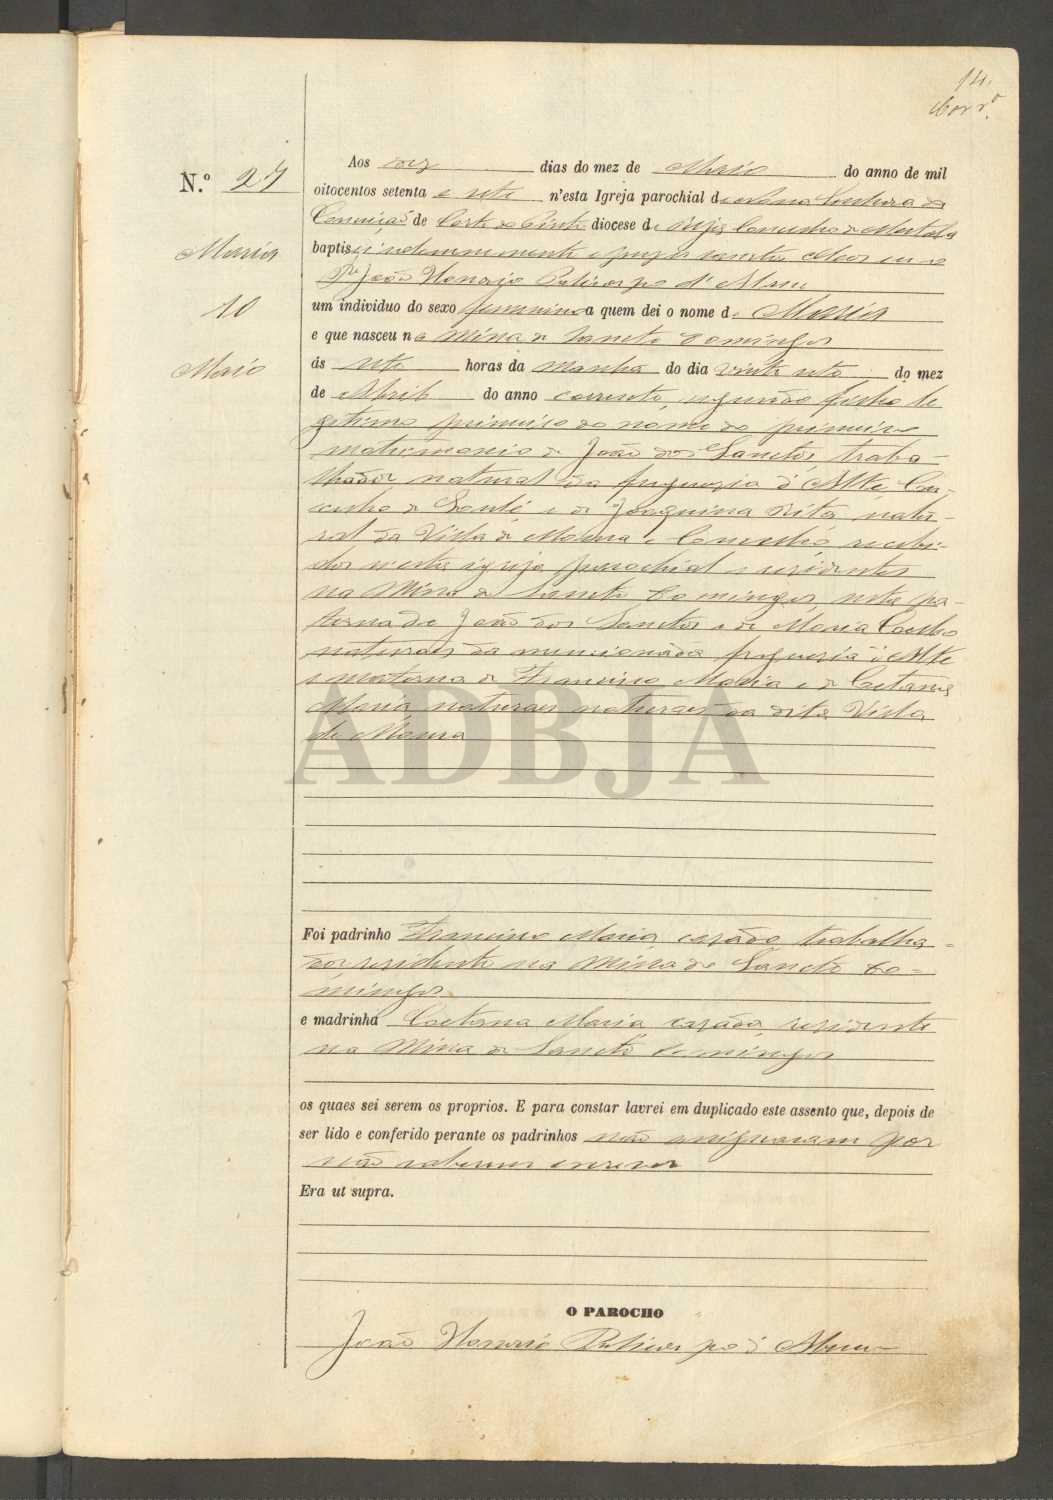 14.
N.º 27
Maria
10
Maio
Aos dez dias do mez de Maio do anno de mil
oitocentos setenta e sete n'esta Igreja parochial de Nossa Senhora da
Conceição de Corte do Pinto diocese de Beja Concelho de Mertola
baptisei solemnemente e puz os sanctos oleos eu o
P.e João Honorio Policarpo d'Abreu
um individuo do sexo femenino a quem dei o nome de Maria
e que nasceu na Mina de Sancto Domingos
ás sete horas da manhã do dia vinte sete do mez
de Abril do anno corrente, segundo filho le
gitimo primeiro do nome do primeiro
matrimonio de João dos Sanctos, traba-
lhador natural da freguezia d'Alte, Con-
celho de Loulé e de Joaquina Rita, natu-
ral da Villa de Moura e Concelho, recebi-
dos n'esta igreja parochial e residentes
na Mina de Sancto Domingos, neta pa-
terna de João dos Sanctos e de Maria Coelho
naturaes da mencionada freguezia d'Alte
e materna de Francisco Maria e de Caetana
Maria naturaes naturaes da dita Villa
de Moura
ADBJA
Foi padrinho Francisco Maria, casado, trabalha-
dor residente na Mina de Sancto Do-
mingos
e madrinha Caetana Maria, casada, residente
na Mina de Sancto Domingos
os quaes sei serem os proprios. E para constar lavrei em duplicado este assento que, depois de
ser lido e conferido perante os padrinhos não assignaram por
não saberem escrever
Era ut supra.
O PAROCHO
João Honorio Policarpo d'Abreu